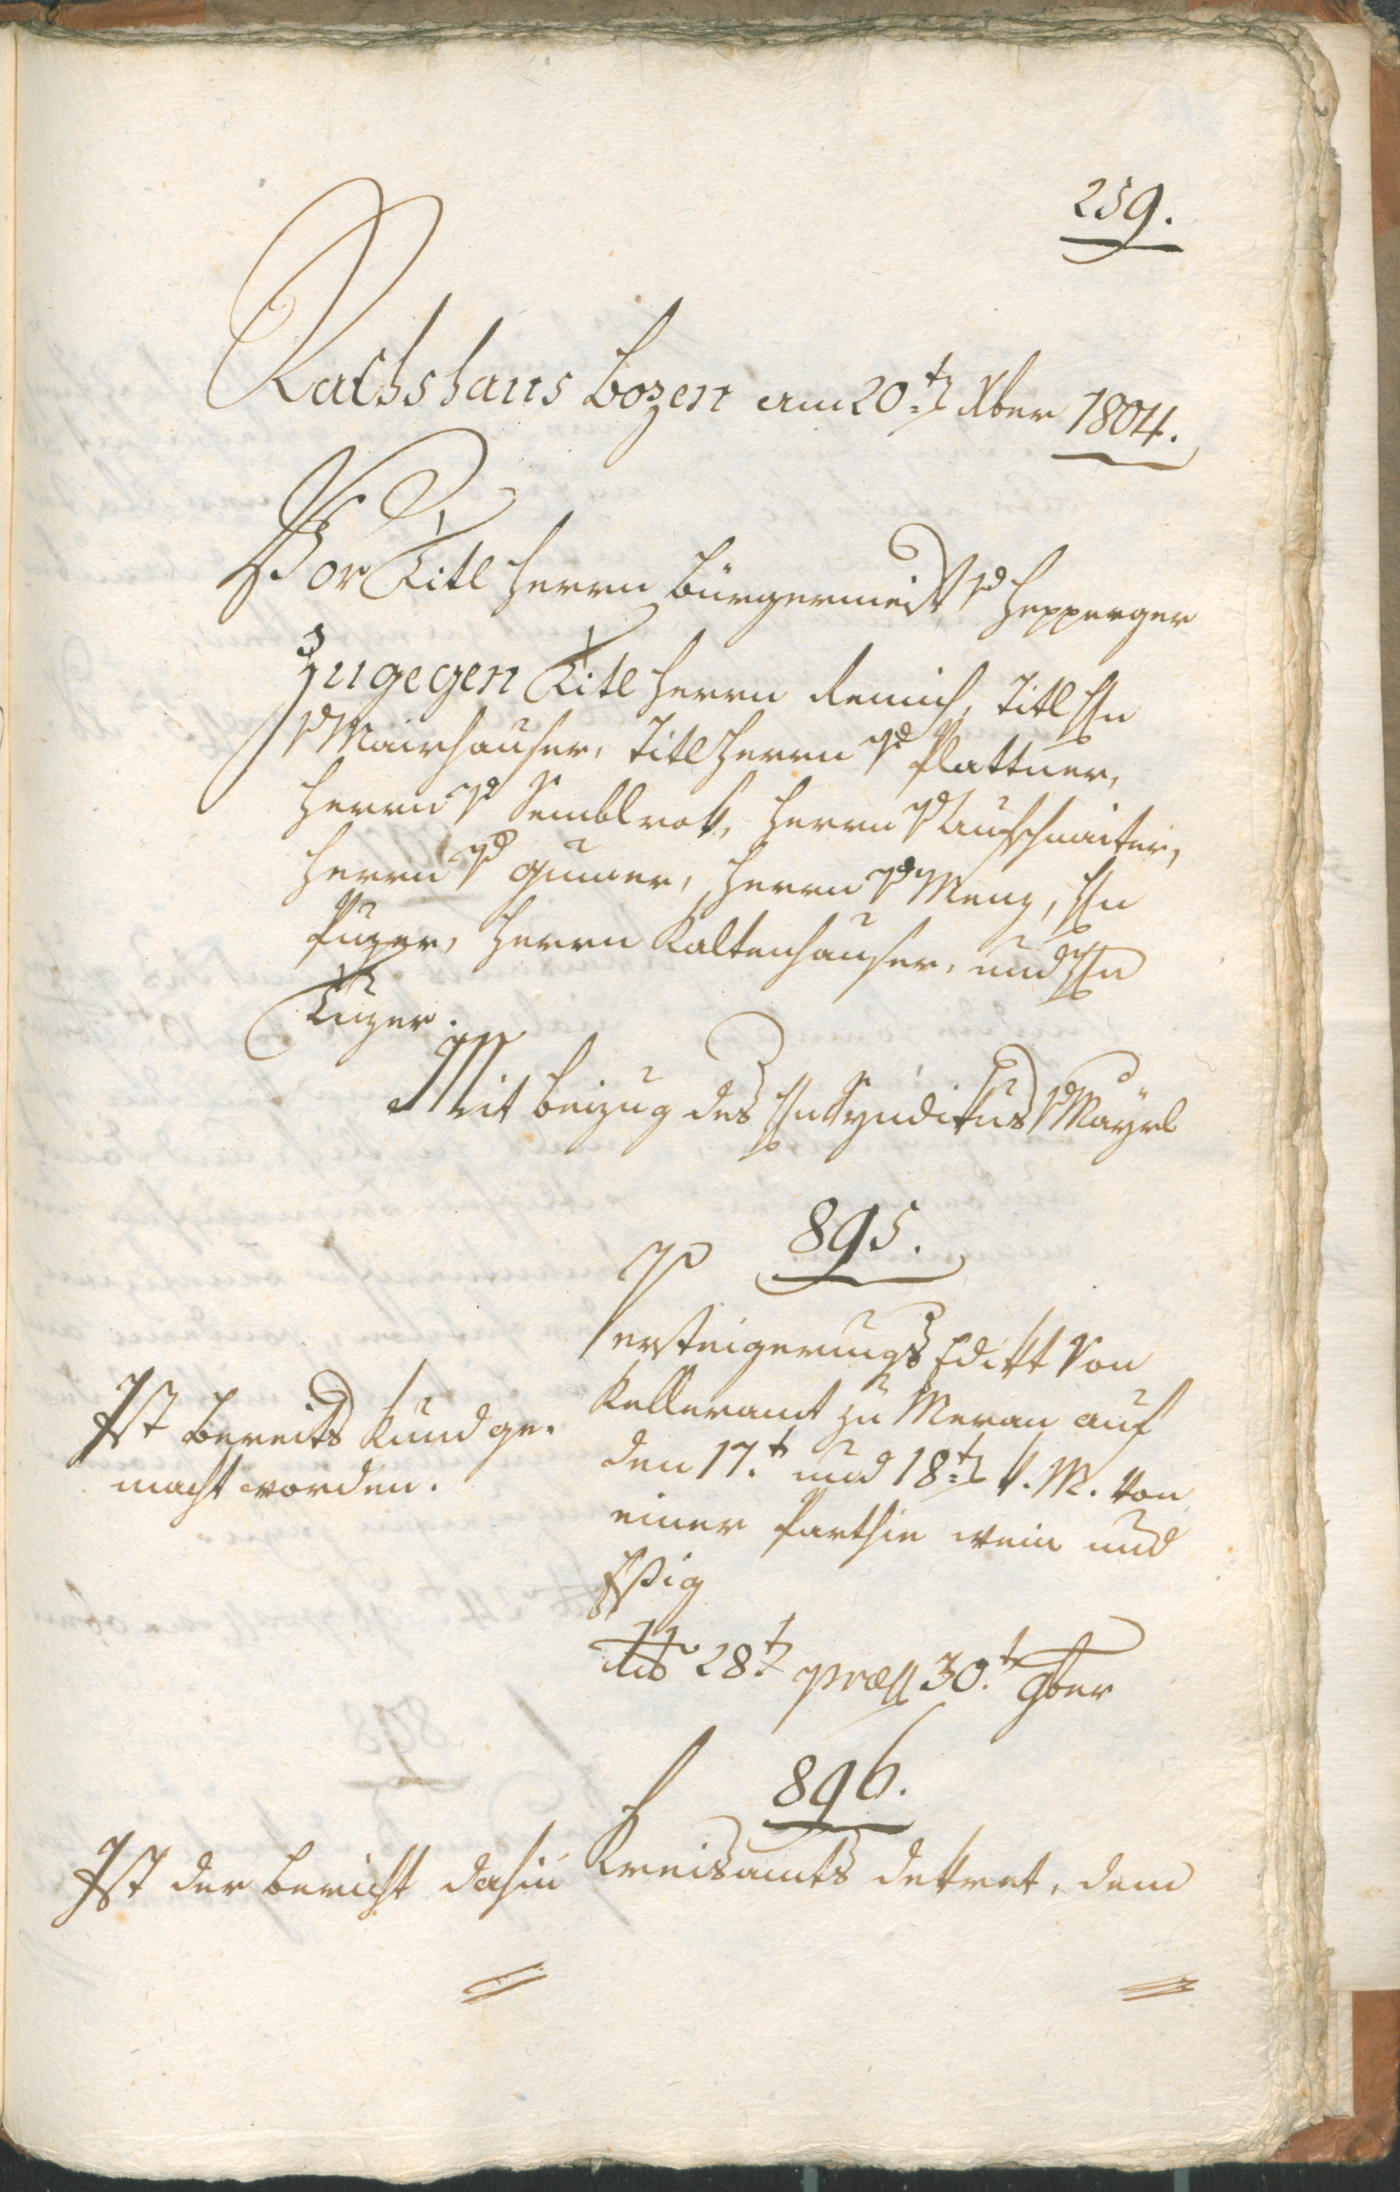 259.
Rathshaus Bozen am 20t Xber 1804.
Vor Titl Herrn Bürgermeist v Hepperger
Zugegen Titl Herrn Remich, Titl Hn
v Mairhauser, Titl Herrn v Plattner,
Herrn v Semblrok, Herrn v Aufschnaiter,
Herrn v Gumer, Herrn v Menz, Hn
Puzer, Herrn Kaltenhauser, und Hn
Tuzer.
Mit Beizug des Hn Syndikus v Mayrl
895.
Versteigerungs Edikt von
Kelleramt zu Meran auf
den 17.t und 18t k. M. von
einer Parthie Wein und
Eßig
28t præs 30.t 9ber
Ist bereits kund ge-
macht worden.
896.
Kreisamts Dekret, dem
Ist der Bericht dahin